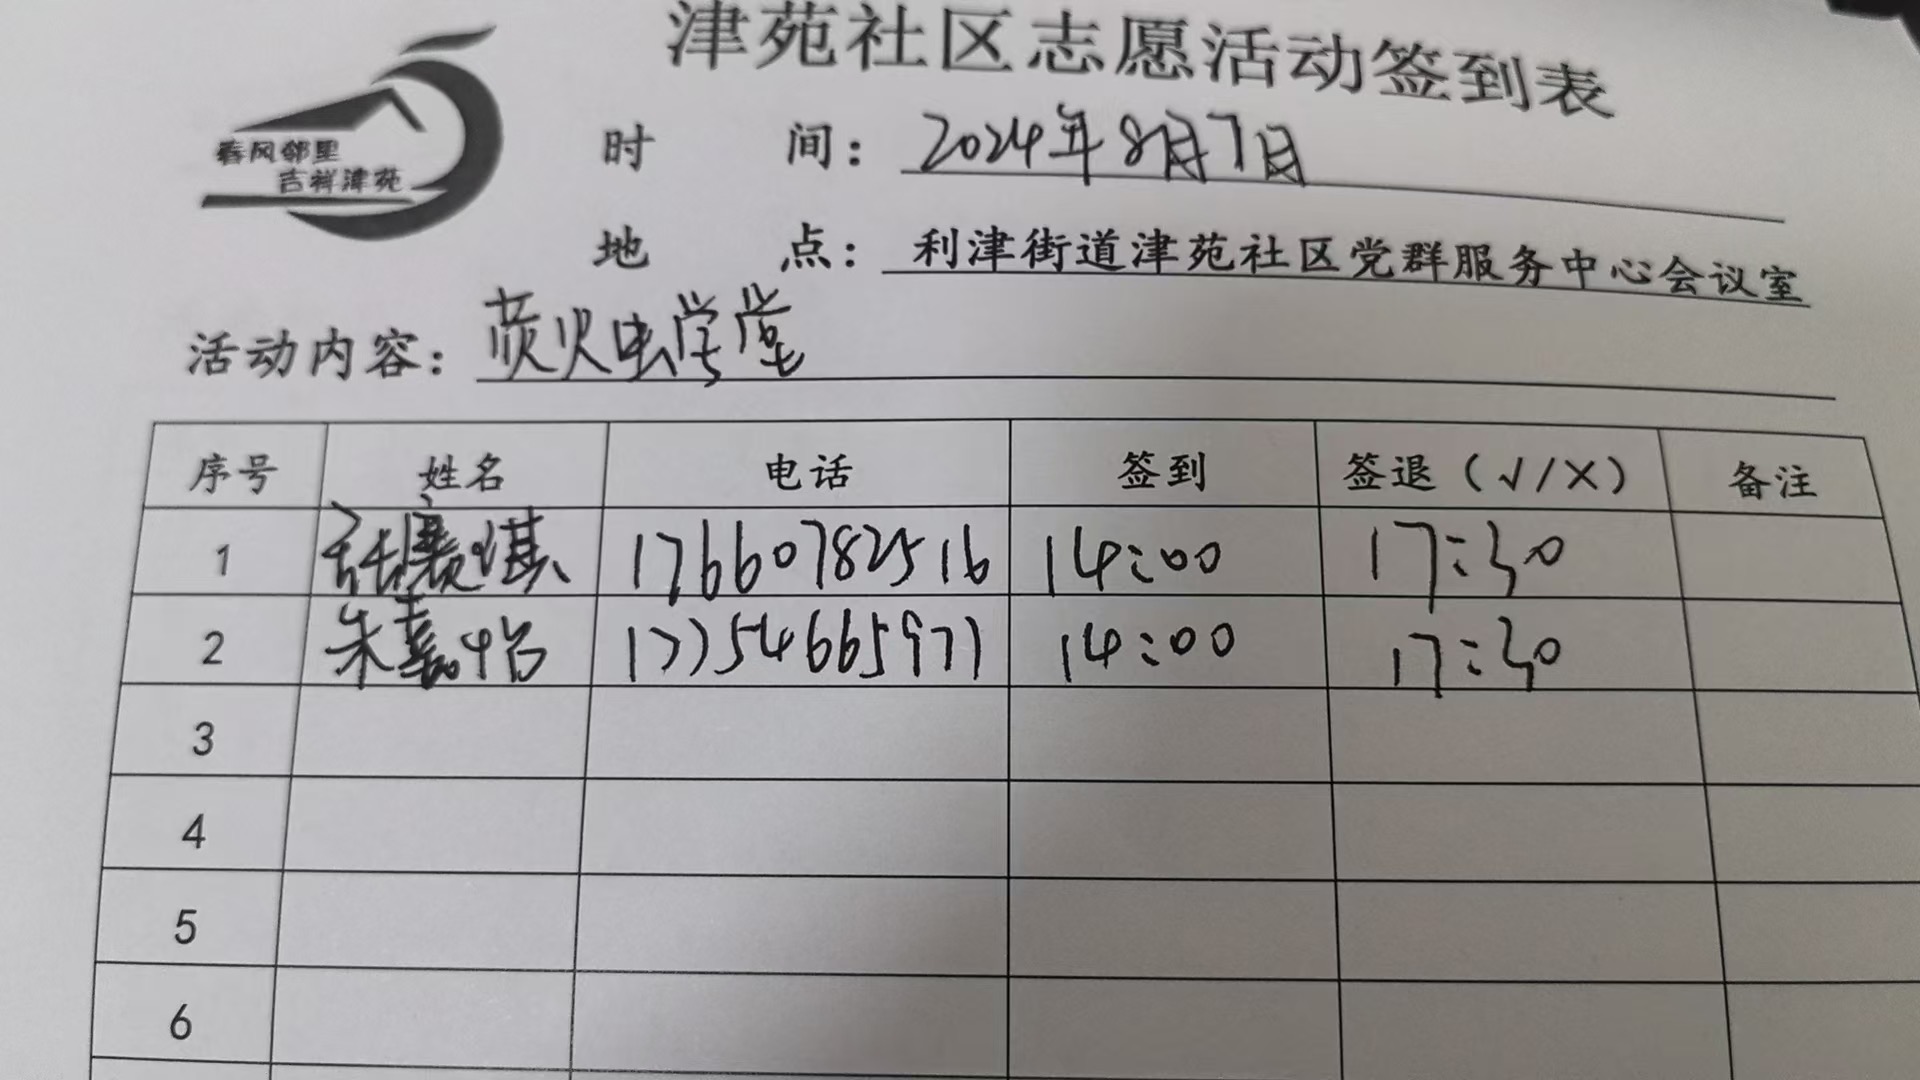 津苑社区志愿活动签到表
春风邻里
吉祥津苑
时 间：2024年8月7日
地 点：利津街道津苑社区党群服务中心会议室
活动内容：萤火虫学堂
序号 姓名 电话 签到 签退（√/×） 备注
1 17660782516 14:00 17:30
2 朱嘉怡 17754665977 14:00 17:30
3
4
5
6